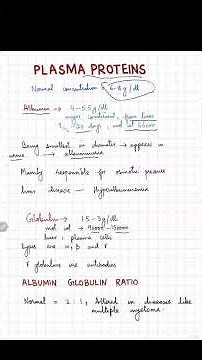 PLASMA PROTEINS
Normal concentration 6-8 g/dl
Albumin → 4-5.5 g/dl
major constituent, from liver
20 days, mol wt 66000
Being smallest in diameter → appears in
urine → albuminuria
Mainly responsible for osmotic pressure
liver disease → Hypoalbuminemia
Globulin → 1.5-3 g/dl
mol wt → 90000 - 150000
liver, plasma cells
Types are α, β and γ
γ globulins are antibodies
ALBUMIN GLOBULIN RATIO
Normal = 2:1, Altered in diseases like
multiple myeloma.